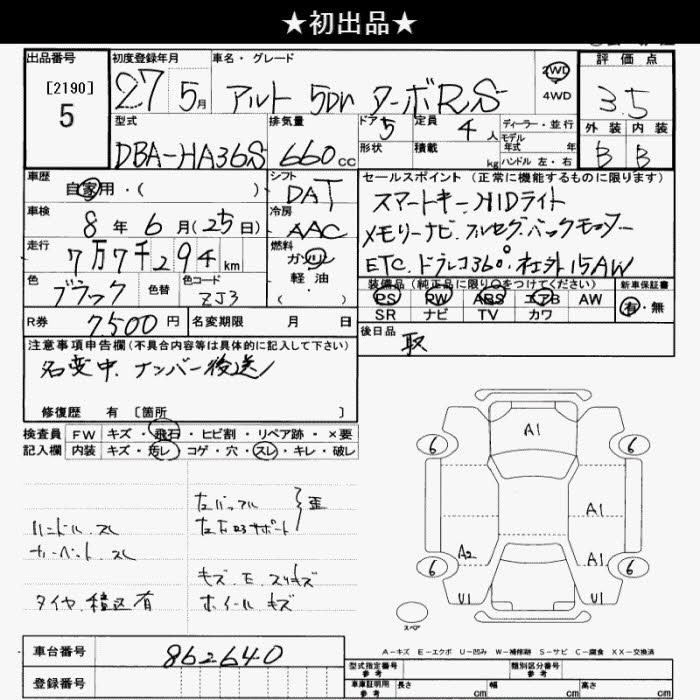 ★初出品★
出品番号
[2190]
5
初度登録年月
27 5月
車名・グレード
アルト 5Dr ターボRS
2WD
4WD
評価点
3.5
外装 内装
B B
型式
DBA-HA36S
排気量
660cc
ドア 5
形状
定員 4人
積載 kg
ディーラー・並行
モデル年式 年
ハンドル 左・右
車歴
自家用・( )
シフト
DAT
車検
8年6月(25日)
冷房
AAC
走行
7万7千294km
燃料
ガソリン
軽油
( )
色
ブラック
色替
色コード
ZJ3
R券
7500円
名変期限 月 日
セールスポイント(正常に機能するものに限ります)
スマートキー、HIDライト
メモリーナビ、フルセグ、バックモニター
ETC、ドラレコ360°・社外15AW
装備品(純正品に限り○をつけてください)
PS PW ABS エアB AW
SR ナビ TV カワ
新車保証書
有・無
後日品
取
注意事項申告欄(不具合内容等は具体的に記入して下さい)
名変中、ナンバー後送
修復歴 有 [箇所 ]
検査員 FW キズ・飛石・ヒビ割・リペア跡・×要
記入欄 内装 キズ・汚レ・コゲ・穴・スレ・キレ・破レ
ハンドル スレ
カーペット スレ
タイヤ 積込有
左バッフル
左右ロアサポート
歪
キズ・E・スリキズ
ホイール キズ
A1
6 6
A1
A2 A1
6 6
U1 U1
スペア
A-キズ E-エクボ U-凹み W-補修跡 S-サビ C-腐食 XX-交換済
車台番号
862640
登録番号
型式指定番号
参考
類別区分番号
参考
車庫証明用
参考
長さ cm 幅 cm 高さ cm